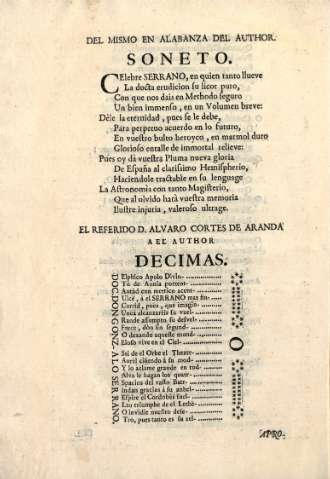 DEL MISMO EN ALABANZA DEL AUTHOR.
SONETO.
CElebre SERRANO, en quien tanto llueve
La docta erudicion su licor puro,
Con que nos dais en Methodo seguro
Un bien immenso, en un Volumen breve:
Dèle la eternidad, pues se le debe,
Para perpetuo acuerdo en lo futuro,
En vuestro bulto heroyco, en marmol duro
Glorioso entalle de immortal relieve:
Pues oy dà vuestra Pluma nueva gloria
De España al clarissimo Hemispherio,
Haciendole tractable en su lenguage
La Astronomìa con tanto Magisterio,
Que al olvido harà vuestra memoria
Ilustre injuria, valeroso ultrage.
EL REFERIDO D. ALVARO CORTES DE ARANDA
A EL AUTHOR
DECIMAS.
DOC. D. GONZALO SERRANO.
Elphico Apolo Divin-
Tu de Aonia portent-
Antad con metrico acent-
Ulcè, à el SERRANO mas fin-
Unca alcanzarèis su vuel-
Frece, dòn sin segund-
O
Y lo aclame grande en tod-
Alva le hagan los quatr-
Spacios del vasto
Indan gracias à su anhel-
Espire el Cordobès
Las triumphe de el Lethè-
O invidie nuestro
Tro, pues tanto es su zel-
APRO-